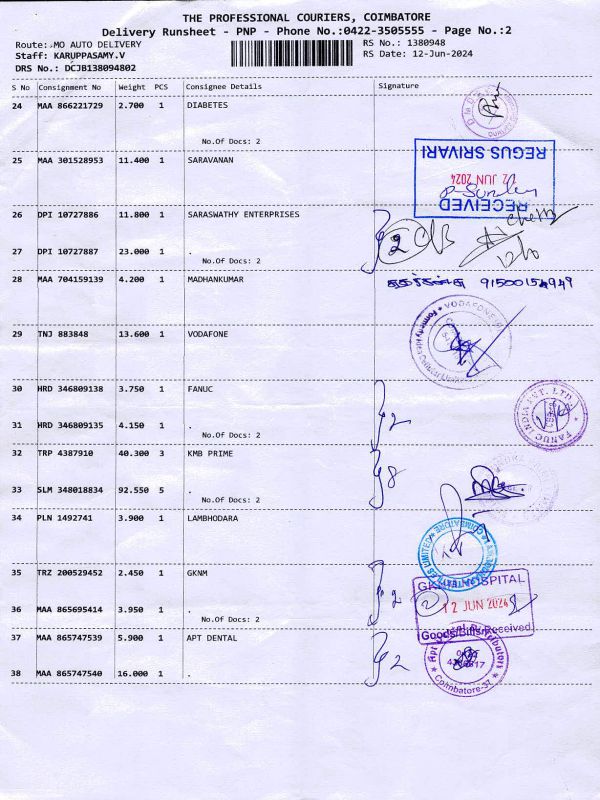 THE PROFESSIONAL COURIERS, COIMBATORE
Delivery Runsheet - PNP - Phone No.:0422-3505555 - Page No.:2
Route: MO AUTO DELIVERY
RS No.: 1380948
Staff: KARUPPASAMY.V
RS Date: 12-Jun-2024
DRS No.: DCJB138094802
S No Consignment No Weight PCS Consignee Details Signature
24 MAA 866221729 2.700 1 DIABETES
No.Of Docs: 2
25 MAA 301528953 11.400 1 SARAVANAN
REGUS SRIVARI
2 JUN 2024
RECEIVED
26 DPI 10727886 11.800 1 SARASWATHY ENTERPRISES
2
27 DPI 10727887 23.000 1 .
No.Of Docs: 2
28 MAA 704159139 4.200 1 MADHANKUMAR
91500154949
29 TNJ 883848 13.600 1 VODAFONE
VODAFONE
30 HRD 346809138 3.750 1 FANUC
2
FANUC INDIA PVT. LTD
31 HRD 346809135 4.150 1 .
No.Of Docs: 2
32 TRP 4387910 40.300 3 KMB PRIME
8
33 SLM 348018834 92.550 5 .
No.Of Docs: 2
34 PLN 1492741 3.900 1 LAMBHODARA
COIMBATORE
LIMITED
35 TRZ 200529452 2.450 1 GKNM
GKNM HOSPITAL
2
2
12 JUN 2024
36 MAA 865695414 3.950 1 .
No.Of Docs: 2
Goods/Bills Received
37 MAA 865747539 5.900 1 APT DENTAL
2
Apt Dental Distributors
Coimbatore-37
38 MAA 865747540 16.000 1 .